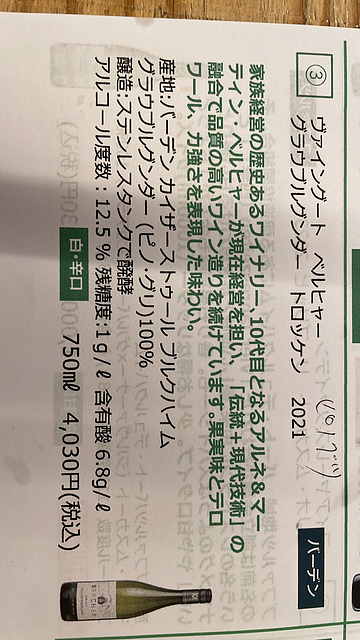 ③
ヴァイングート ベルヒャー
グラウブルグンダー トロッケン 2021
バーデン
家族経営の歴史あるワイナリー、10代目となるアルネ&マー
ティン・ベルヒャーが現在経営を担い、「伝統+現代技術」の
融合で品質の高いワイン造りを続けています。果実味とテロ
ワール、力強さを表現した味わい。
産地:バーデン カイザーストゥール ブルクハイム
グラウブルグンダー (ピノ・グリ)100%
醸造:ステンレスタンクで醗酵
アルコール度数:12.5% 残糖度:1g/ℓ 含有酸 6.8g/ℓ
白・辛口 750mℓ 4,030円(税込)
BERCHER